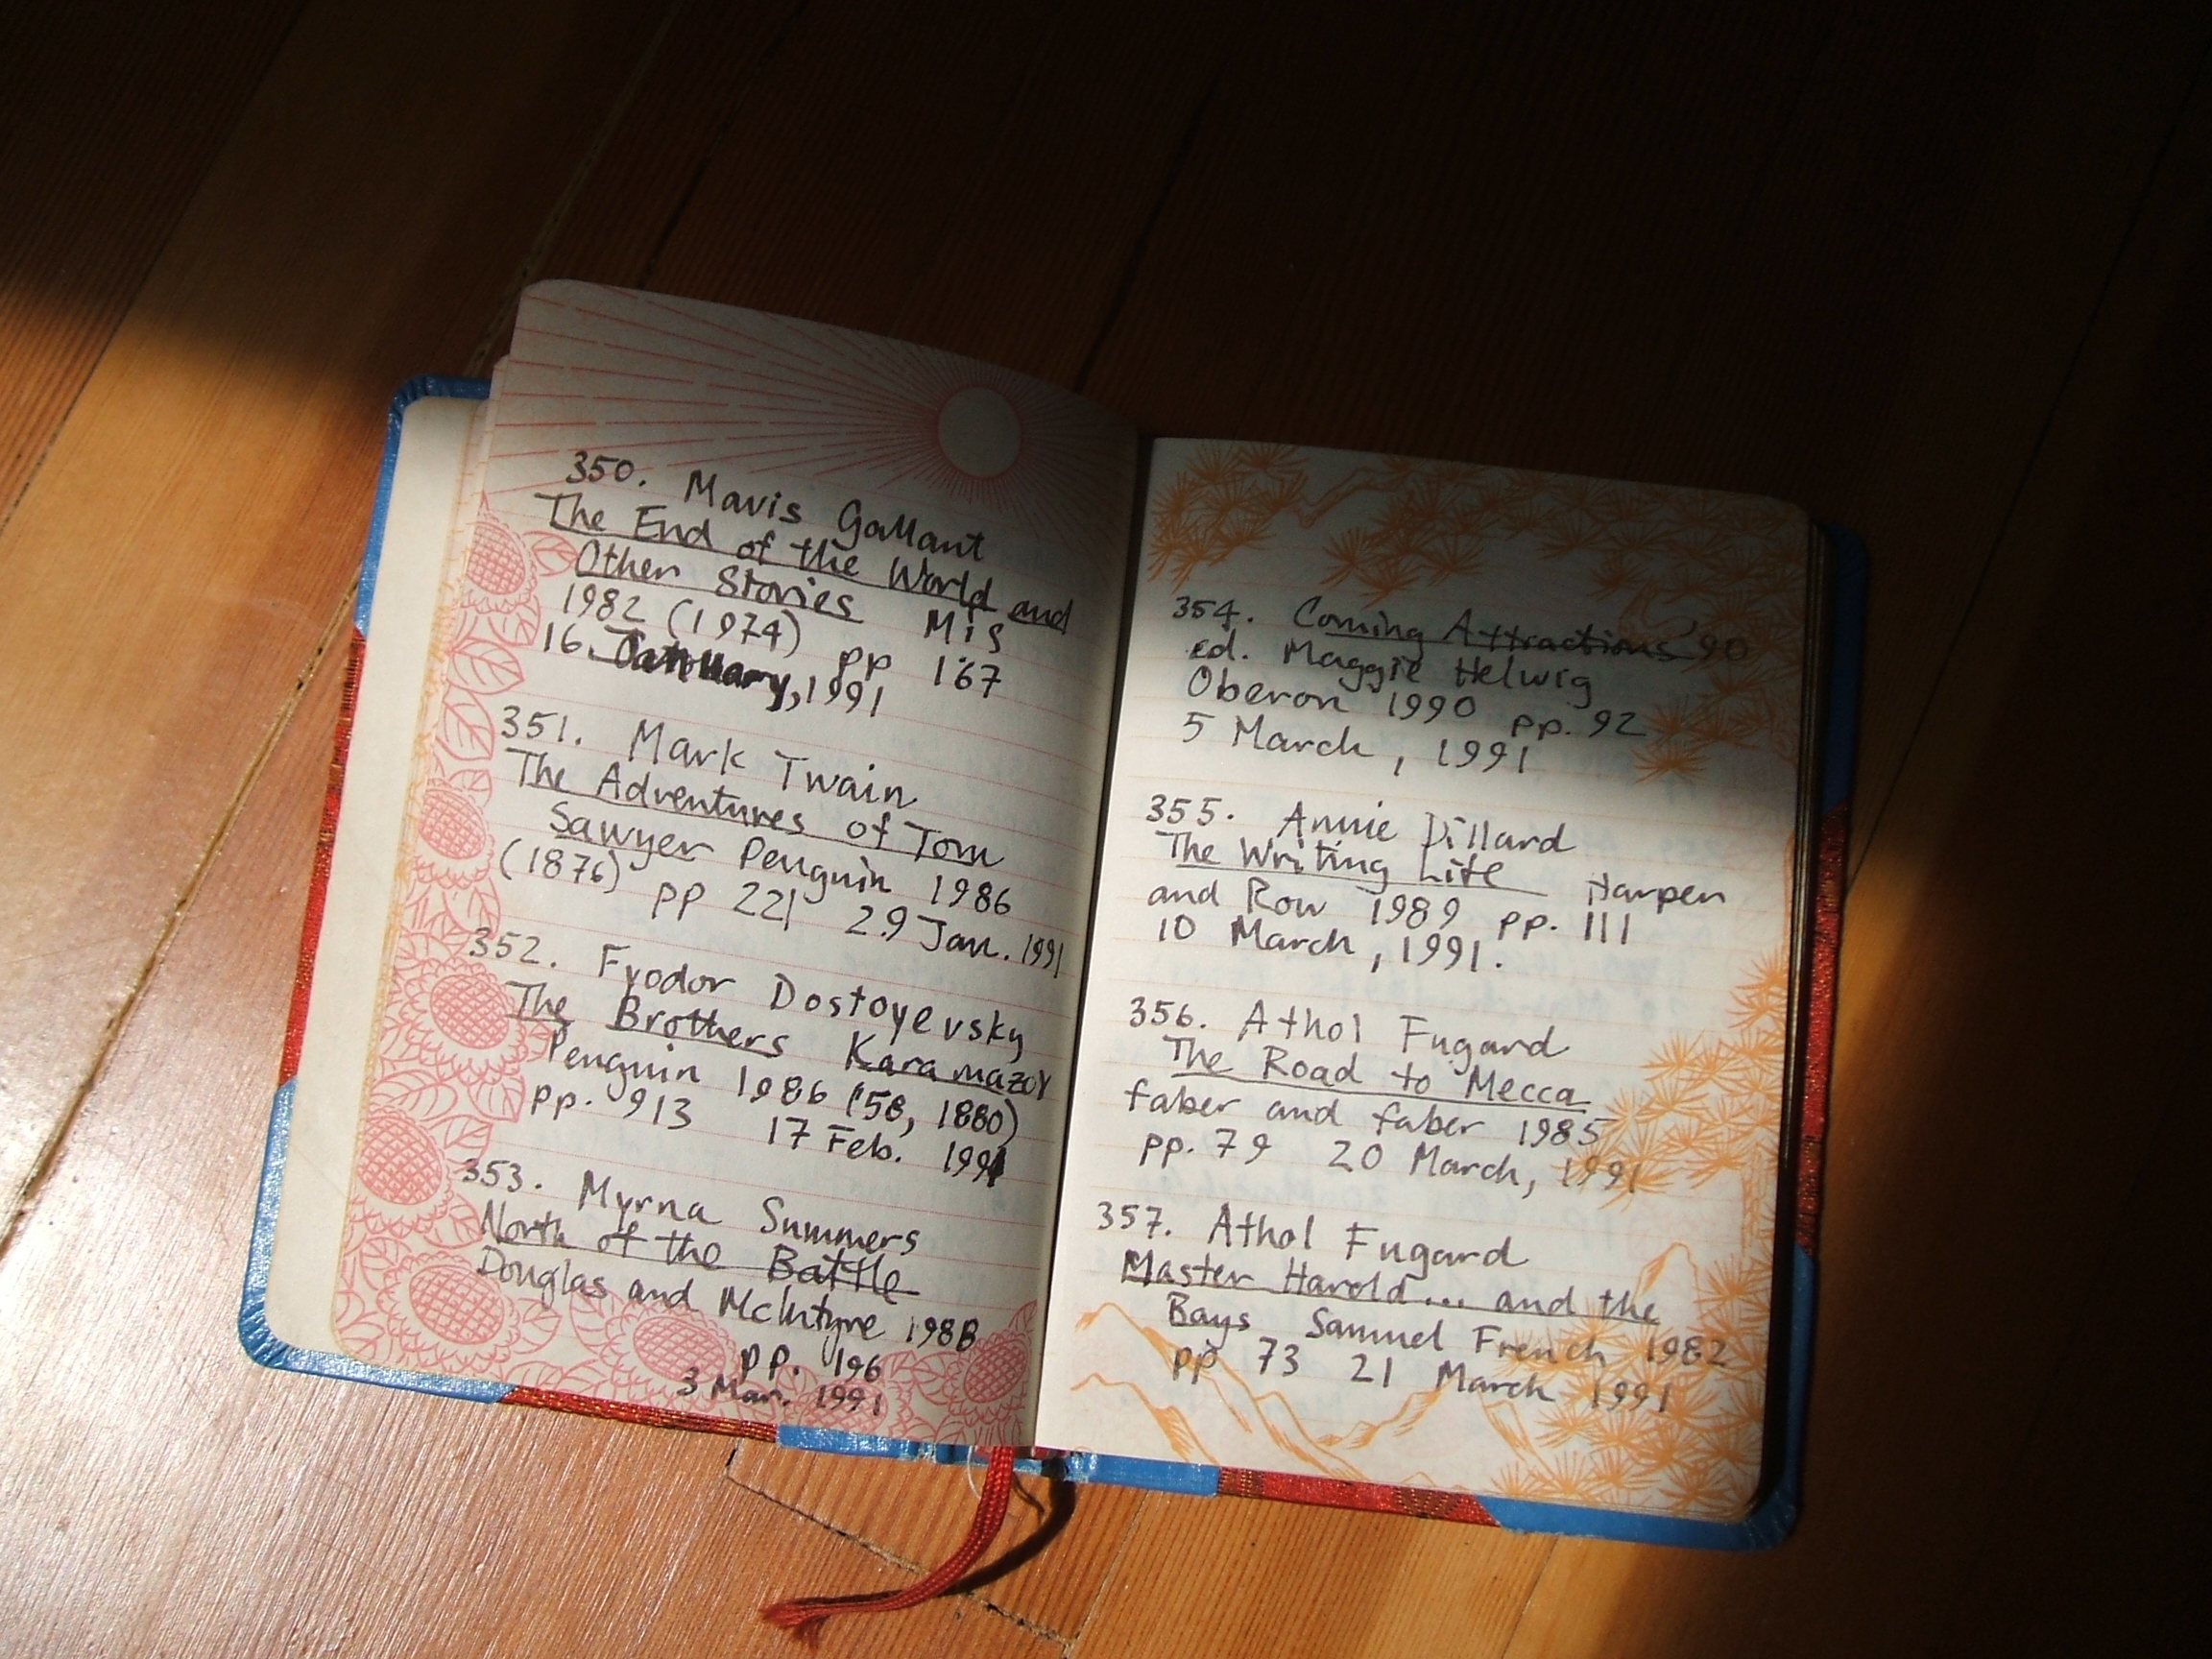 350. Mavis Gallant
The End of the World and
Other Stories M&S
1982 (1974) pp 167
16. January, 1991
351. Mark Twain
The Adventures of Tom
Sawyer Penguin 1986
(1876) pp 221 29 Jan. 1991
352. Fyodor Dostoyevsky
The Brothers Karamazov
Penguin 1986 ('58, 1880)
pp. 913 17 Feb. 1991
353. Myrna Summers
North of the Battle
Douglas and McIntyre 1988
pp. 196
3 Mar. 1991
354. Coming Attractions '90
ed. Maggie Helwig
Oberon 1990 pp. 92
5 March, 1991
355. Annie Dillard
The Writing Life Harper
and Row 1989 pp. 111
10 March, 1991.
356. Athol Fugard
The Road to Mecca
faber and faber 1985
pp. 79 20 March, 1991
357. Athol Fugard
Master Harold... and the
Boys Samuel French 1982
pp 73 21 March 1991